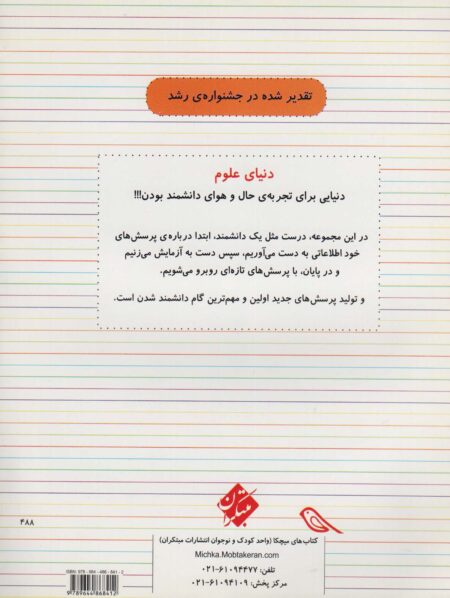 تقدیر شده در جشنواره‌ی رشد
دنیای علوم
دنیایی برای تجربه‌ی حال و هوای دانشمند بودن!!!
در این مجموعه، درست مثل یک دانشمند، ابتدا درباره‌ی پرسش‌های
خود اطلاعاتی به دست می‌آوریم، سپس دست به آزمایش می‌زنیم
و در پایان، با پرسش‌های تازه‌ای روبرو می‌شویم.
و تولید پرسش‌های جدید اولین و مهم‌ترین گام دانشمند شدن است.
مبتکران
۴۸۸
کتاب‌های میچکا (واحد کودک و نوجوان انتشارات مبتکران)
Michka.Mobtakeran.com
تلفن: ۶۱۰۹۴۴۷۷-۰۲۱
مرکز پخش: ۶۱۰۹۴۱۰۹-۰۲۱
ISBN: 978-964-486-841-2
9789644868412